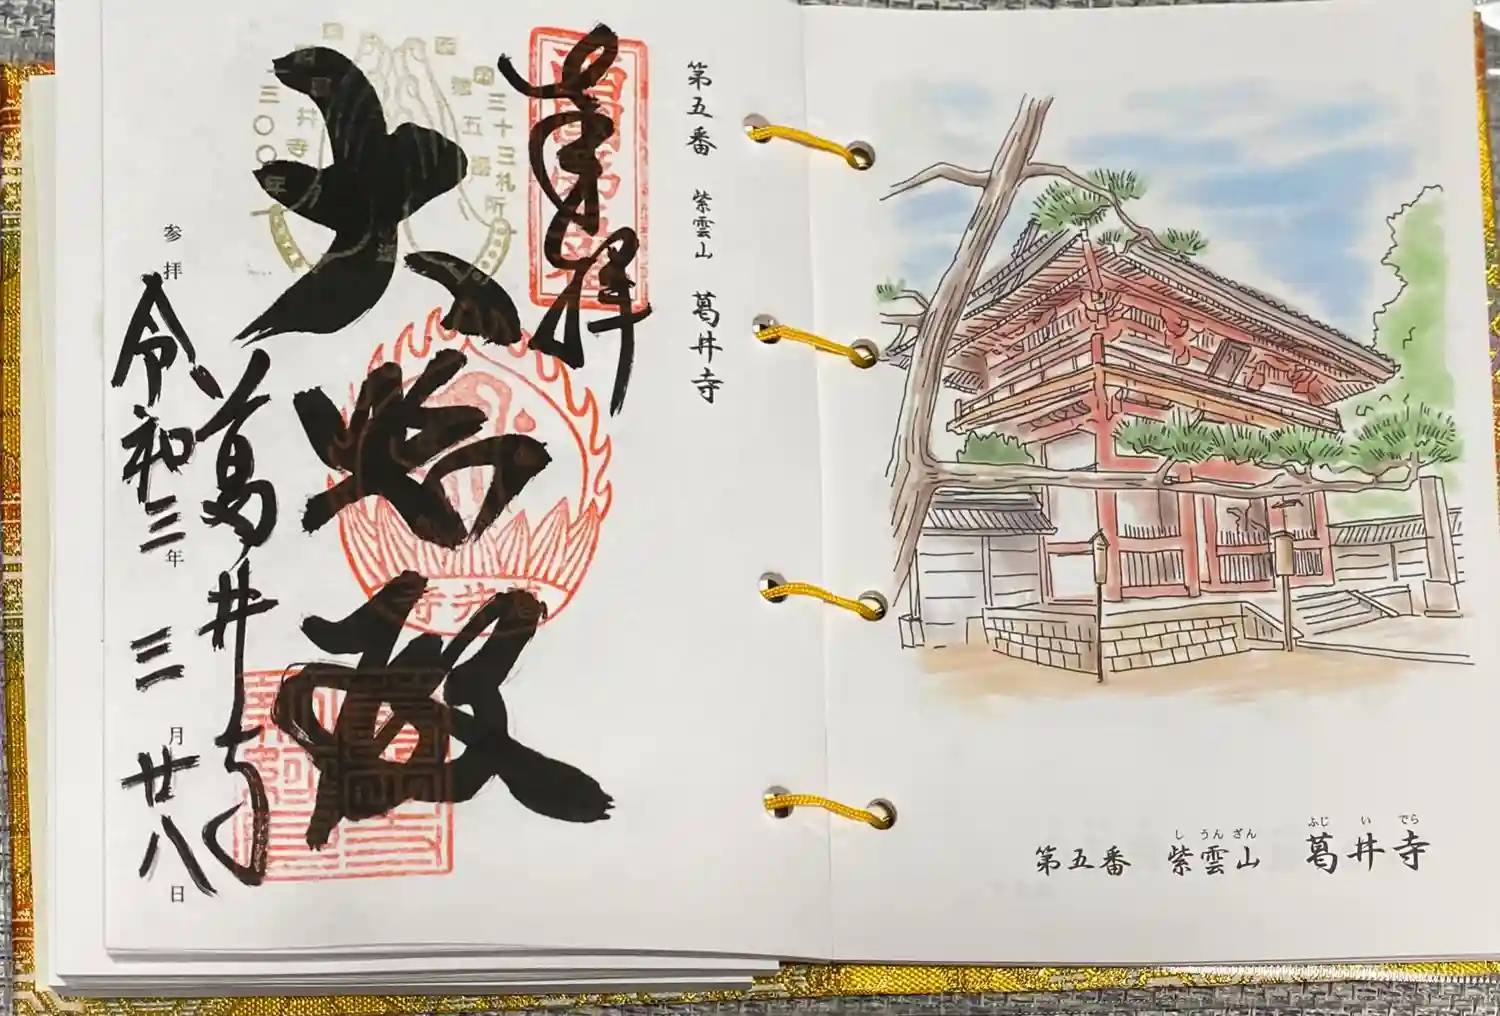 第五番 紫雲山 葛井寺
奉拝
西国第五番
大悲殿
葛井寺
葛井寺
三十三札所
一三〇〇年
参拝
令和三年 三月廿八日
し うん ざん ふじ い でら
第五番 紫雲山 葛井寺